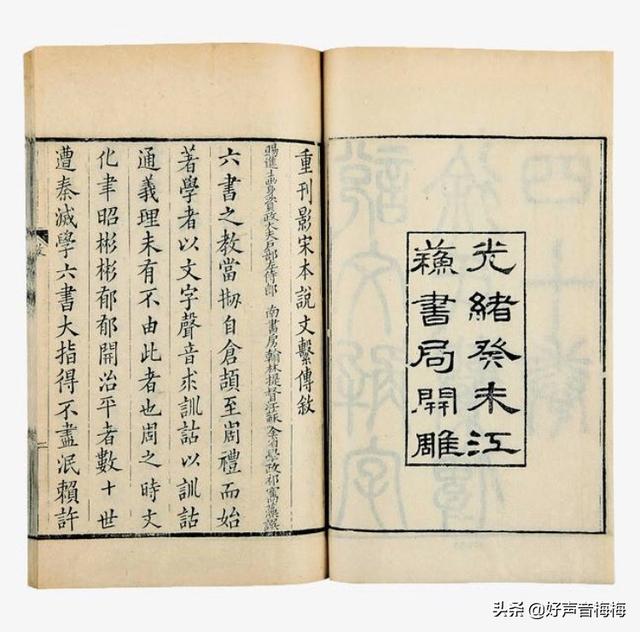 光緒癸未江
蘓書局開雕
重刊影宋本說文繫傳敘
賜進士出身資政大夫戶部左侍郎 南書房翰林提督江蘇全省學政祁寯藻譔
六書之教當刱自倉頡至周禮而始
著學者以文字聲音求訓詁以訓詁
通義理未有不由此者也周之時文
化聿昭彬彬郁郁開治平者數十世
遭秦滅學六書大指得不盡泯賴許
头条 @好声音梅梅